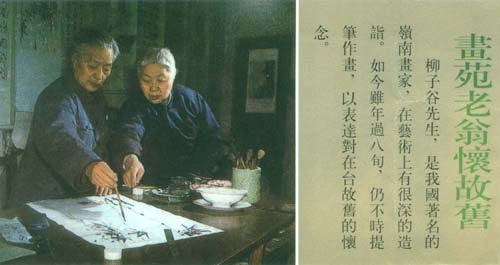 畫苑老翁懷故舊
柳子谷先生，是我國著名的
嶺南畫家，在藝術上有很深的造
詣。如今雖年過八旬，仍不時提
筆作畫，以表達對在台故舊的懷
念。